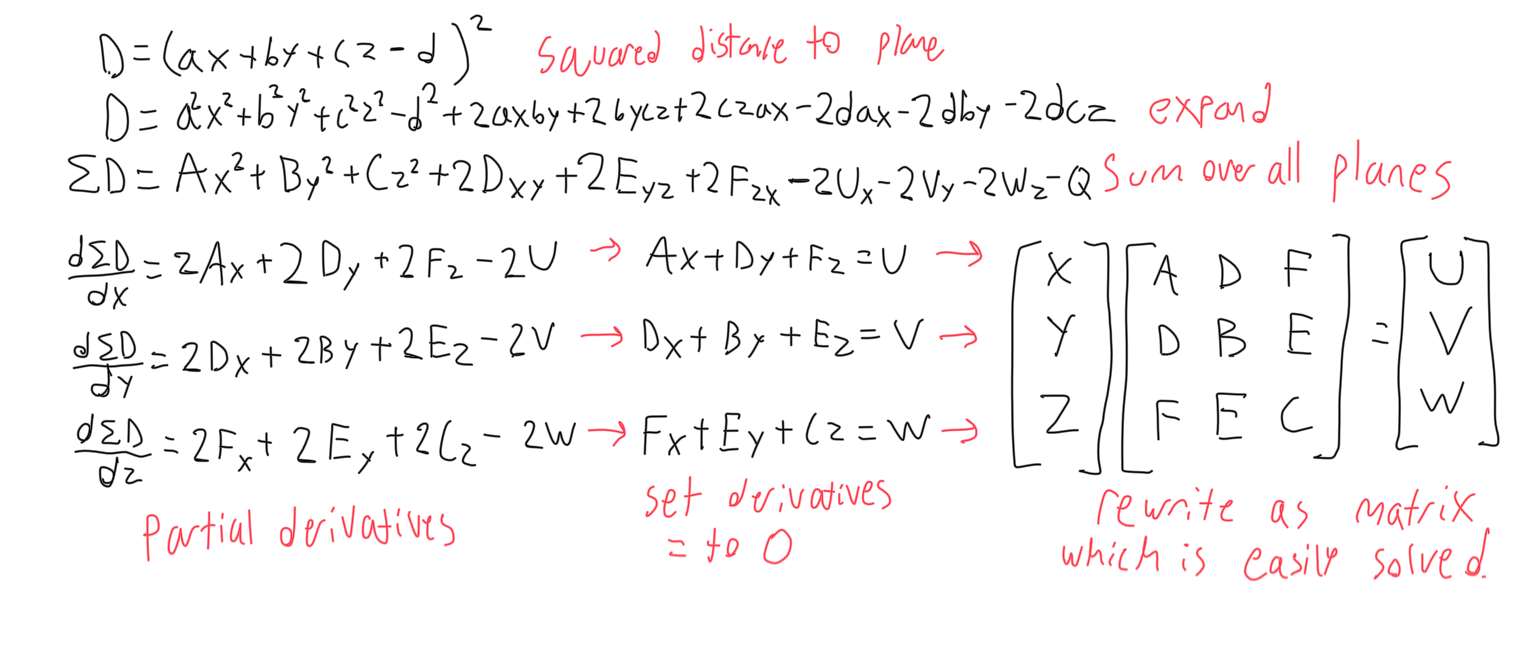 D=(ax+by+cz-d)² Squared distance to plane
D=a²x²+b²y²+c²z²-d²+2axby+2bycz+2czax-2dax-2dby-2dcz expand
ΣD=Ax²+By²+Cz²+2Dxy+2Eyz+2Fzx-2Ux-2Vy-2Wz-Q Sum over all planes
dΣD/dx=2Ax+2Dy+2Fz-2U → Ax+Dy+Fz=U → [X] [A D F] = [U]
dΣD/dy=2Dx+2By+2Ez-2V → Dx+By+Ez=V → [Y] [D B E] = [V]
dΣD/dz=2Fx+2Ey+2Cz-2W → Fx+Ey+Cz=W → [Z] [F E C] = [W]
Partial derivatives
set derivatives
= to 0
rewrite as matrix
which is easily solved.